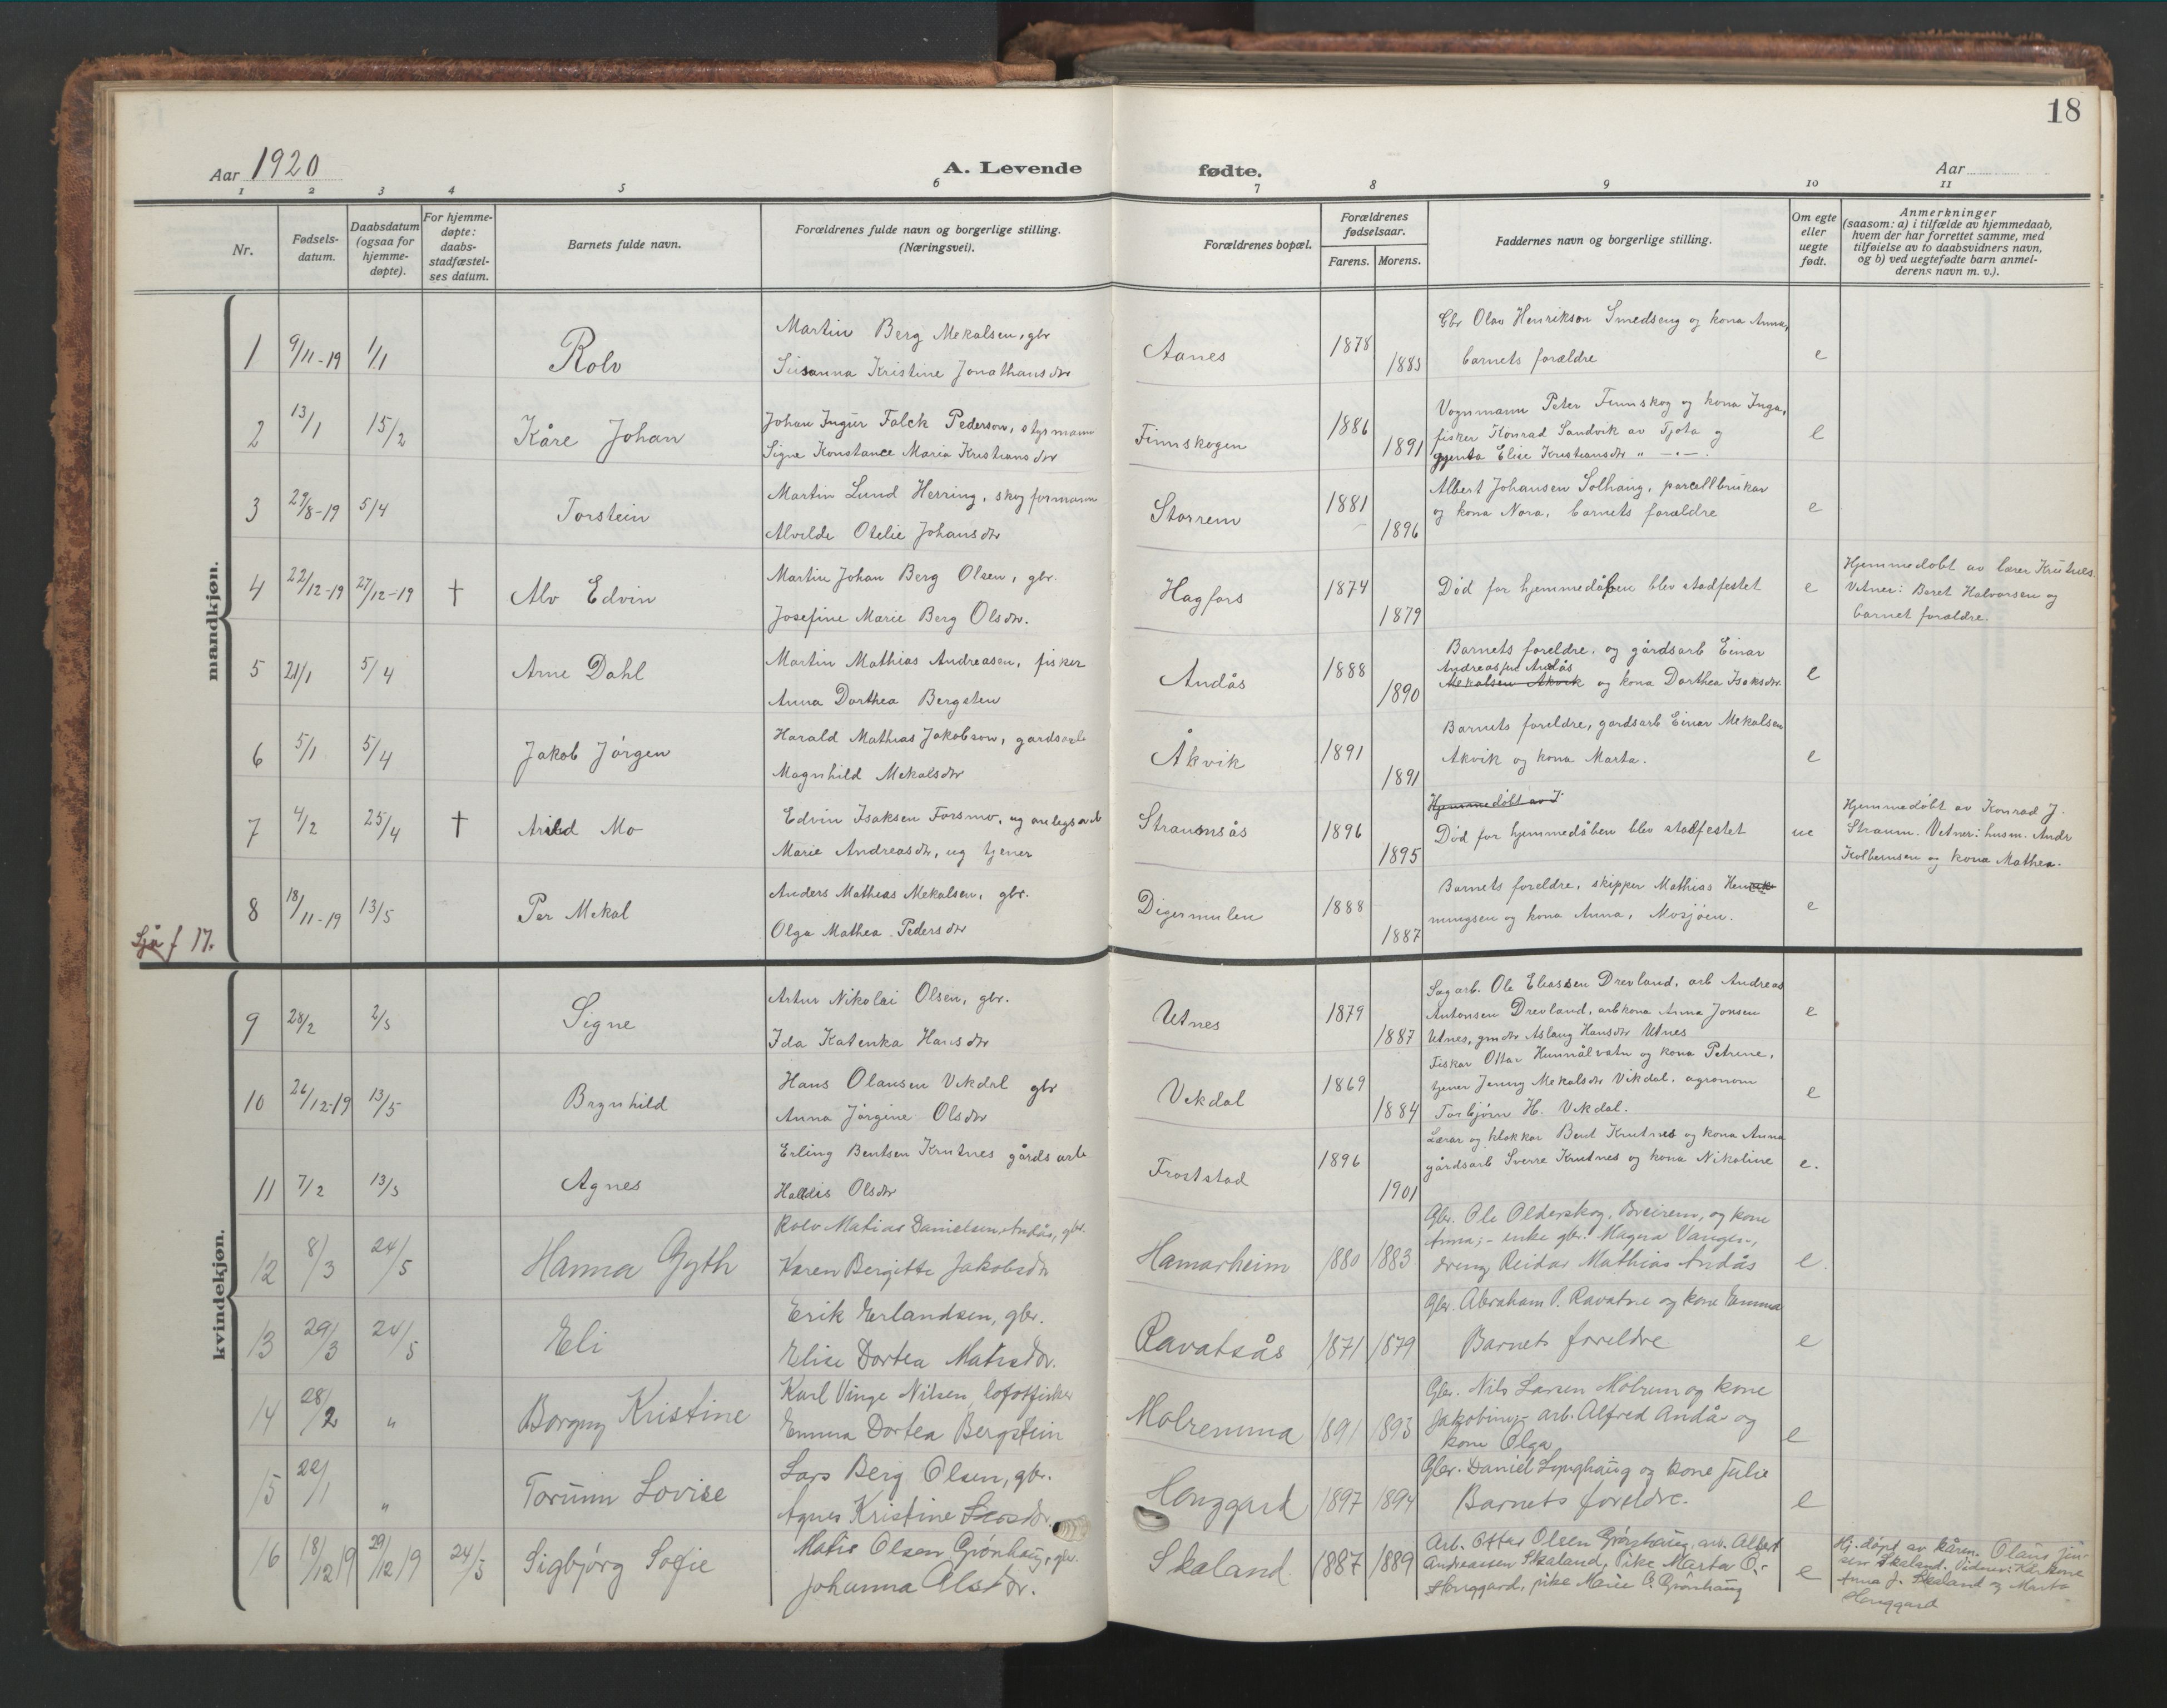 18
Aar 1920
A. Levende fødte.
Aar
1 2 3 4 5 6 7 8 9 10 11
Nr.
Fødsels-datum.
Daabsdatum (ogsaa for hjemme-døpte).
For hjemme-døpte: daabs-stadfæstel-ses datum.
Barnets fulde navn.
Forældrenes fulde navn og borgerlige stilling. (Næringsvei).
Forældrenes bopæl.
Forældrenes fødselsaar.
Farens. Morens.
Faddernes navn og borgerlige stilling.
Om egte eller uegte født.
Anmerkninger
(saasom: a) i tilfælde av hjemmedaab,
hvem der har forrettet samme, med
tilføielse av to daabsvidners navn,
og b) ved uegtefødte barn anmel-
derens navn m. v.).
mandkjøn.
1 9/11-19 1/1 Rolv
Martin Berg Mekalsen, gbr
Susanna Kristine Jonathansdtr
Aanes 1878 1883
Gbr Olav Henrikson Smedseng og kona Anna,
barnets forældre
e
2 13/1 15/2 Kåre Johan
Johan Ingvir Falck Pederson, styrmann
Signe Konstance Maria Kristiansdtr
Finnskogen 1886 1891
Vognmann Peter Finnskog og kona Inga,
fisker Konrad Sandvik av Tjøta og
gjenta Elise Kristiansdtr " — " —
e
3 29/8-19 5/4 Torstein
Martin Lund Herring, skogformann
Alvilde Otelie Johansdtr
Storrem 1881 1896
Albert Johansen Solhaug, parcellbrukar
og kona Nora, barnets forældre
e
4 22/12-19 27/12-19 † Alv Edvin
Martin Johan Berg Olsen, gbr.
Josefine Marie Berg Olsdtr.
Hagfors 1874 1879
Død før hjemmedåben blev stadfestet
e
Hjemmedøbt av lærer Krutnes.
Vitner: Beret Halvorsen og
barnet forældre.
5 21/1 5/4 Arne Dahl
Martin Mathias Andreasen, fisker
Anna Dorthea Bergsten
Andås 1888 1890
Barnets foreldre, og gårdsarb Einar
Andreassen Andås
Mekalsen Åkvik og kona Dorthea Isaksdtr.
e
6 5/1 5/4 Jakob Jörgen
Harald Mathias Jakobson, gardsarb
Magnhild Mekalsdtr
Åkvik 1891 1891
Barnets foreldre, gardsarb Einar Mekalsen
Åkvik og kona Marta.
e
7 4/2 25/4 † Arild Mo
Edvin Isaksen Forsmo, ug anlegsarb
Marie Andreasdtr, ug tjener
Straumsås 1896 1895
Hjemmedøbt av J
Død før hjemmedåben blev stadfestet
ue
Hjemmedøbt av Konrad J.
Straum. Vitner: husm. Andr
Kolbeinsen og kona Mathea.
8 18/11-19 13/5 Per Mekal
Anders Mathias Mekalsen, gbr.
Olga Mathea Pedersdtr
Digermulen 1888 1887
Barnets foreldre, skipper Mathias Hen
ningsen og kona Anna, Mosjøen.
e
Sjå f 17.
kvindekjøn.
9 28/2 2/5 Signe
Artur Nikolai Olsen, gbr.
Ida Katinka Hansdtr
Utnes 1879 1887
Sagarb. Ole Eliassen Drevland, arb Andreas
Antonsen Drevland, arbkona Anna Jonsen
Utnes, gmdtr Aslaug Hansdtr Utnes
e
10 26/12-19 13/5 Brynhild
Hans Olausen Vikdal gbr
Anna Jörgine Olsdtr
Vikdal 1869 1884
Fiskar Ottar Hunnålvatn og kona Petrine,
tjener Jenny Mekalsdtr Vikdal, agronom
Torbjörn H. Vikdal.
e
11 7/2 13/5 Agnes
Erling Bentsen Krutnes gårdsarb
Halldis Olsdtr
Froststad 1896 1901
Lærar og klokkar Bent Krutnes og kona Anna
gårdsarb Sverre Krutnes og kona Nikoline
e.
12 8/3 24/5 Hanna Gyth
Rolv Matias Danielsen Andås, gbr.
Karen Bergitte Jakobsdtr
Hamarheim 1880 1883
Gbr. Ole Olderskog, Breirem, og kone
Anna; - enke gbr. Magna Vanger,
dreng Reidar Mathias Andås
e.
13 29/3 24/5 Eli
Erik Erlandsen, gbr.
Elise Dortea Matisdtr.
Ravatsås 1871 1879
Gbr. Abraham P. Ravatne og kone Emma
Barnets foreldre
e
14 28/2 " Borgny Kristine
Karl Vinge Nilsen, lofotfisker
Emma Dortea Bergstein
Molremma 1891 1893
Gbr. Nils Larsen Molrem og kone
Jakobine; - arb. Alfred Andås og
kone Olga
e
15 22/1 " Torunn Lovise
Lars Berg Olsen, gbr.
Agnes Kristine
Honggard 1897 1894
Gbr. Daniel Lynghaug og kone Julie
Barnets foreldre.
e
16 18/12 19 29/12 19 24/5 Sigbjørg Sofie
Matis Olsen Grønhaug, gbr.
Johanna Olsdtr.
Skaland 1887 1889
Arb. Ottar Olsen Grønhaug, arb. Albert
Andreassen Skaland, Pike Marta O.
Honggard, pike Marie O. Grønhaug
e
Hj. døpt av kåren. Olaus Jen-
sen Skaland. Vidner: Kårkone
Anna J. Skaland og Marta
Honggard